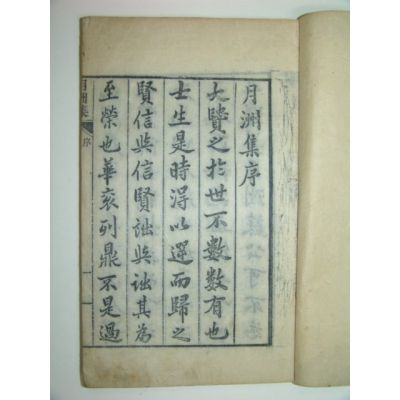 月洲集序
大賢之於世不數數有也
士生是時得以選而歸之
賢信與信賢詘與詘其為
至榮也華衮列鼎不是過
月洲集
序